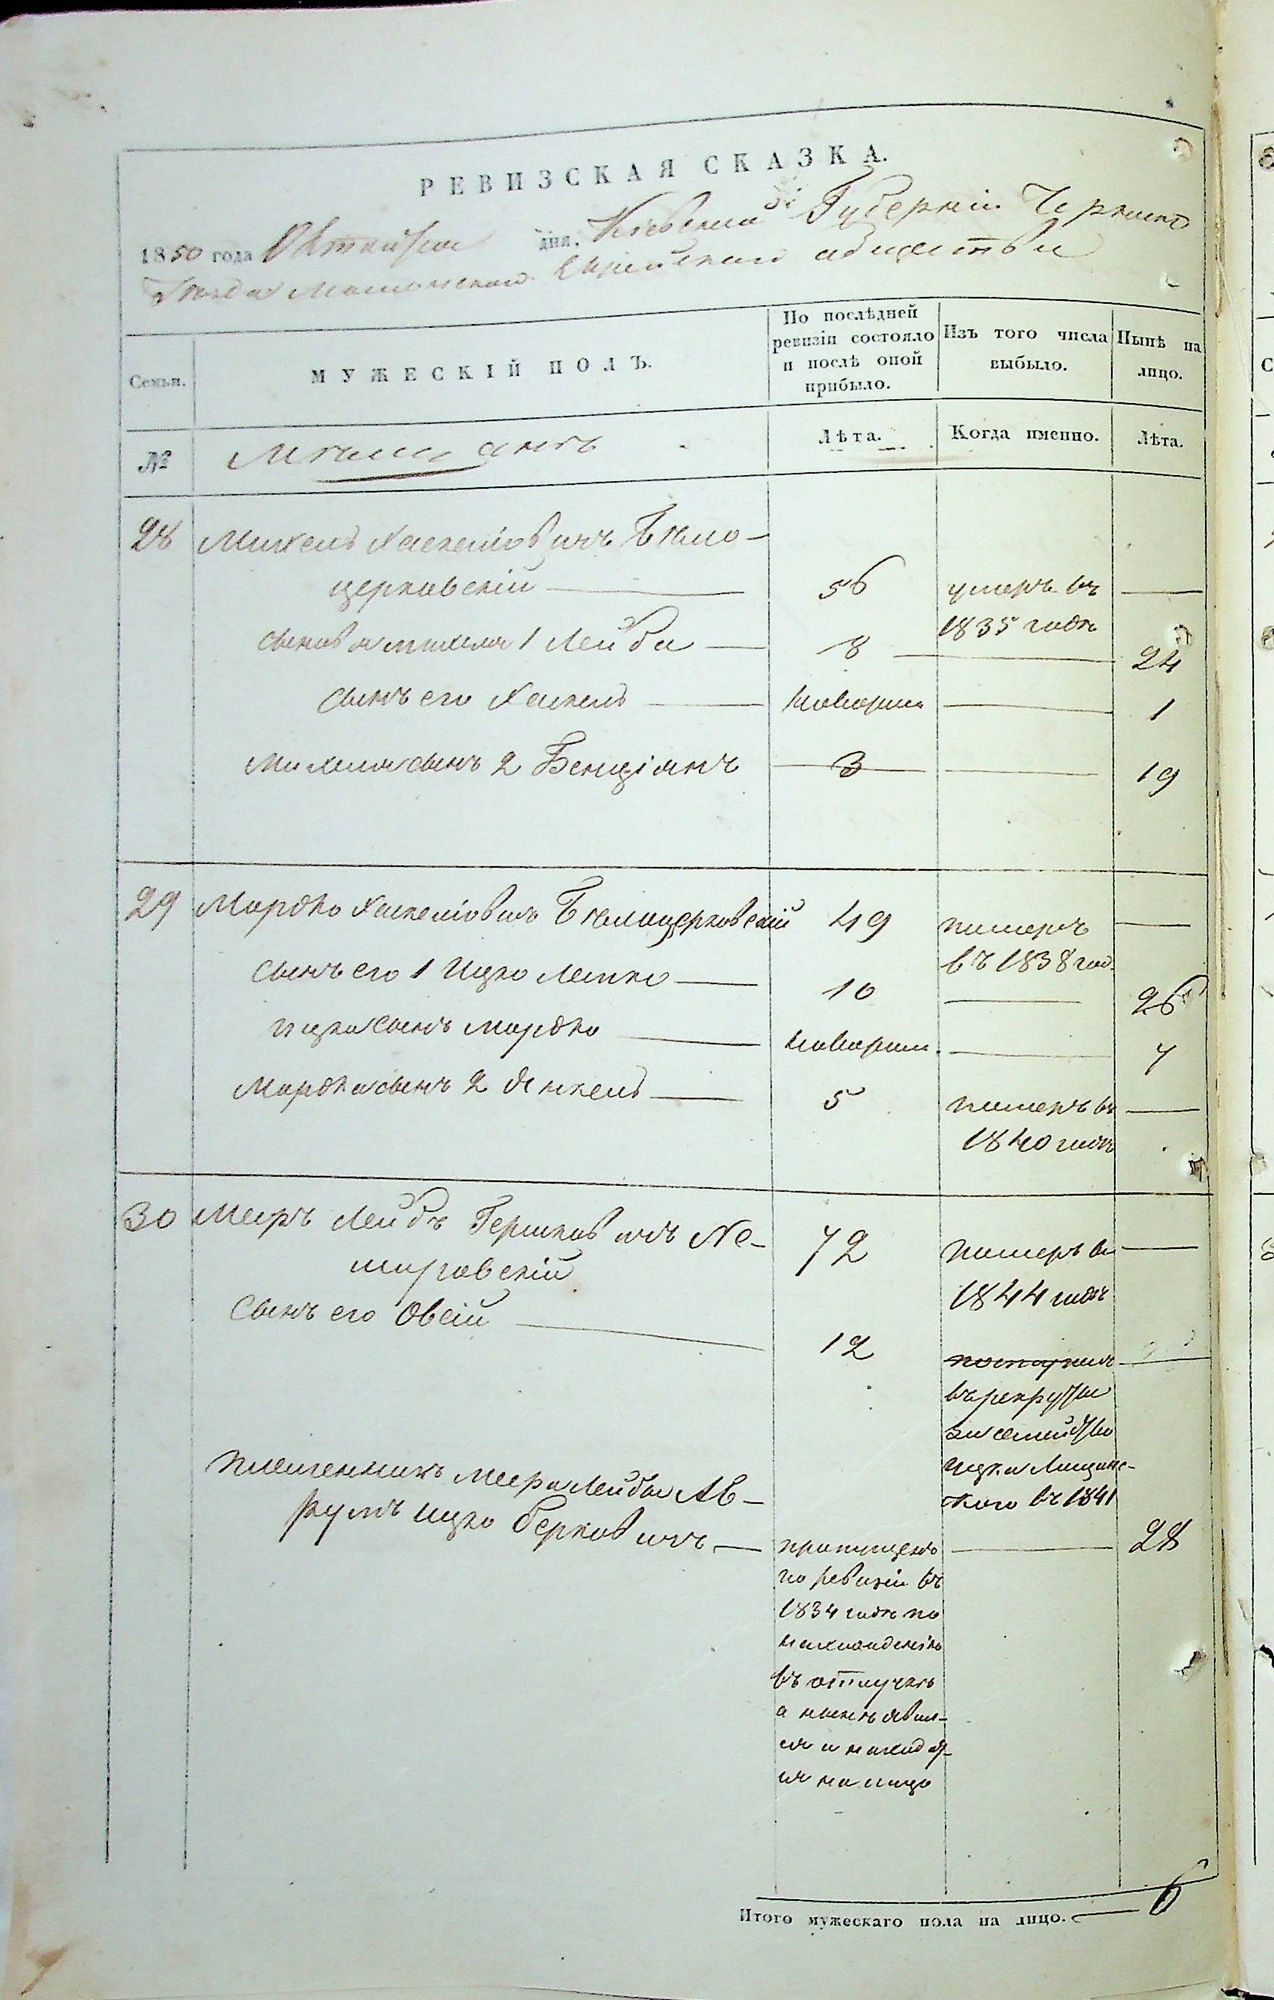 РЕВИЗСКАЯ СКАЗКА.
1850 года Октября дня. Кіевской Губерніи Черкаск
Уѣзда Мошенскаго Еврейскаго общества
Семьи.
МУЖЕСКІЙ ПОЛЪ.
По послѣдней ревизіи состояло и послѣ оной прибыло.
Изъ того числа выбыло.
Нынѣ на лицо.
№
Мѣщанъ
Лѣта.
Когда именно.
Лѣта.
28 Михель Хаскеліовичъ Бѣло-
церковскій — 56 умеръ въ —
1835 годѣ
сыновья Михеля 1 Лейба — 8 — 24
сынъ его Хаскель — новорож — 1
Михеля сынъ 2 Бенціянъ — 3 — 19
29 Мордко Хаскеліовичъ Бѣлоцерковскій 49 померъ —
въ 1838 год.
сынъ его 1 Ицко Лейко — 10 — 26
Ицка сынъ Мордко — новорож. — 7
Мордка сынъ 2 Янкель — 5 померъ въ —
1840 годѣ
30 Меиръ Лейбъ Гершковичъ Не-
мировскій 72 померъ въ —
1844 годѣ
Сынъ его Овсій — 12 поступилъ —
въ рекруты
за семейство
Ицка Лищинс-
каго въ 1841
племенникъ Меира Лейбы Ав-
румъ Ицко Берковичъ — пропущенъ — 28
по ревизіи въ
1834 годѣ по
нахожденію
въ отлучкѣ
а нынѣ явил-
ся и находит-
ся на лицо
Итого мужескаго пола на лицо. — 6